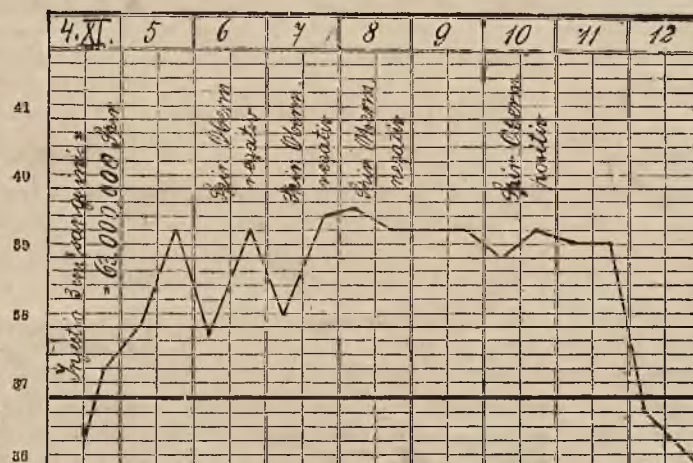 4. XI. 5 6 7 8 9 10 11 12
41
40
39
38
37
36
Injectio 3 cm³ sanguinis =
= 63.000.000 Spir
Spir. Oberm.
negativ
Spir. Oberm.
negativ
Spir. Oberm.
negativ
Spir. Oberm.
positiv